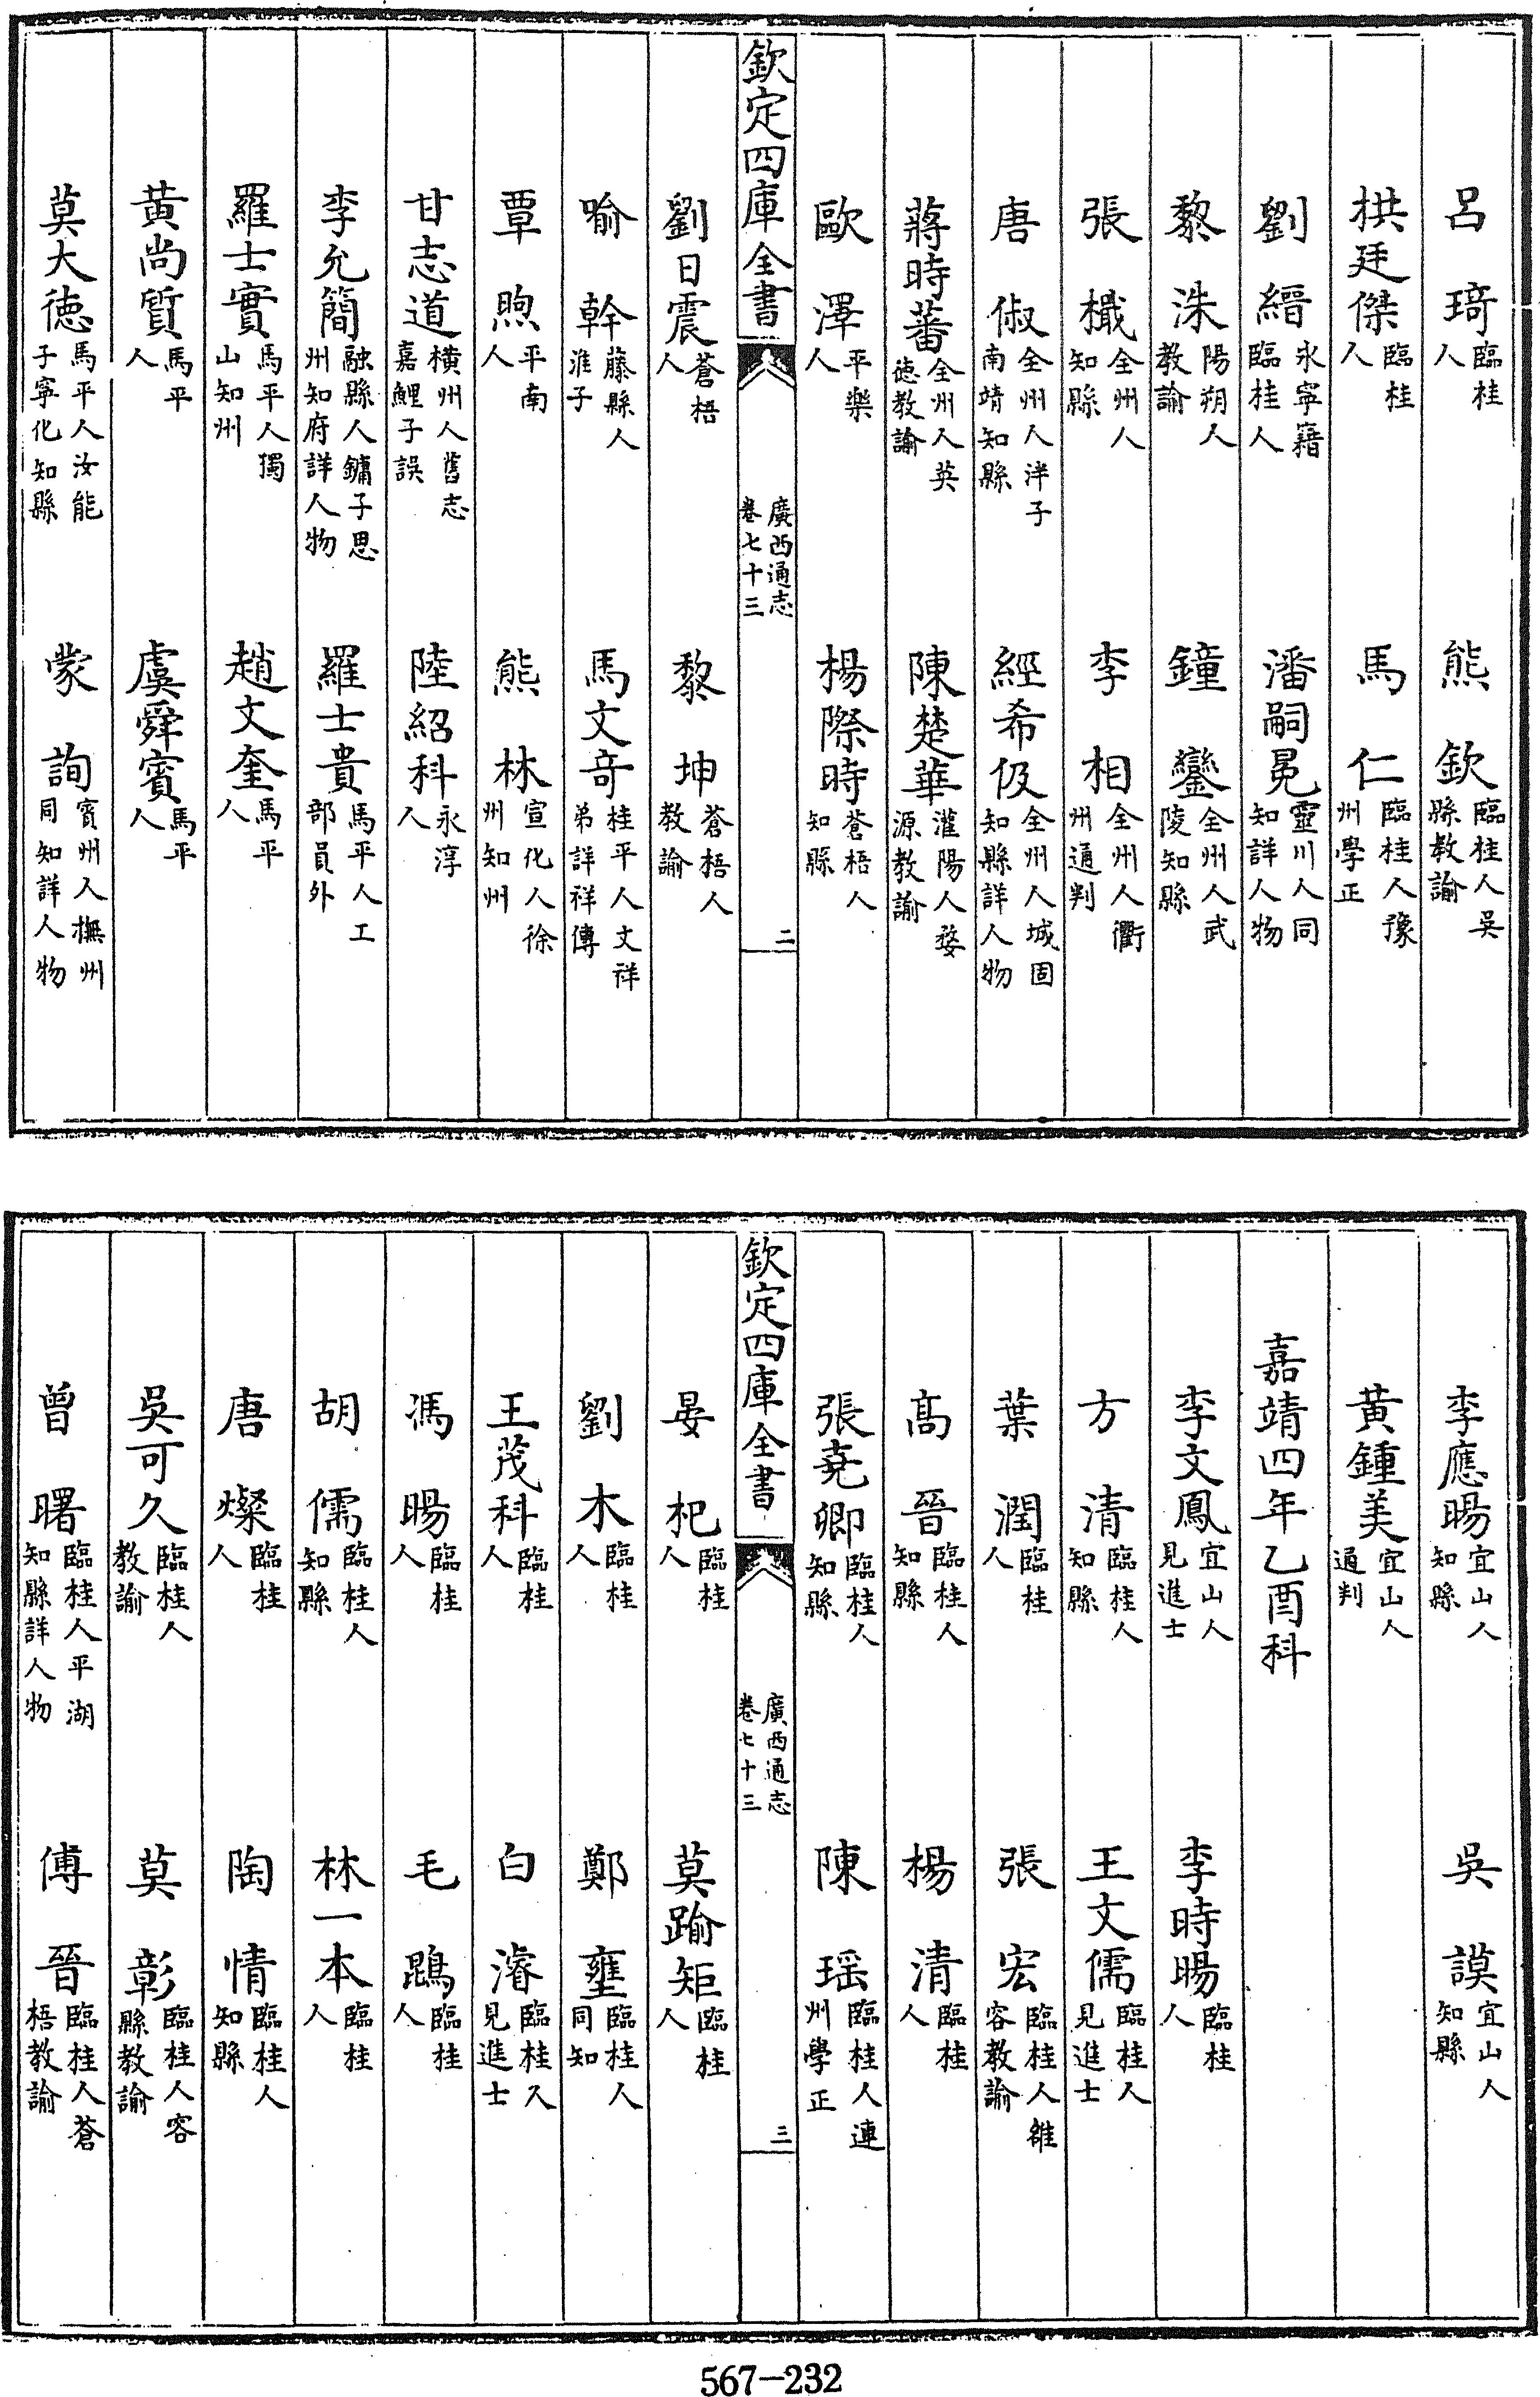 呂琦臨桂人 熊欽臨桂人吳縣教諭
栱廷傑臨桂人 馬仁臨桂人豫州學正
劉縉永寧籍臨桂人 潘嗣冕靈川人同知詳人物
黎洙陽朔人教諭 鐘鑾全州人武陵知縣
張檝全州人知縣 李相全州人衢州通判
唐俶全州人泮子南靖知縣 經希伋全州人城固知縣詳人物
蔣時蕃全州人英徳教諭 陳楚華灌陽人婺源教諭
歐澤平樂人 楊際時蒼梧人知縣
欽定四庫全書 廣西通志卷七十三 二
劉日震蒼梧人 黎坤蒼梧人教諭
喻幹藤縣人淮子 馬文奇桂平人文祥弟詳祥傳
覃煦平南人 熊林宣化人徐州知州
甘志道橫州人舊志嘉鯉子誤 陸紹科永淳人
李允簡融縣人鏞子思州知府詳人物 羅士貴馬平人工部員外
羅士實馬平人獨山知州 趙文奎馬平人
黃尚質馬平人 虞舜賓馬平人
莫大徳馬平人汝能子寧化知縣 蒙詢賓州人撫州同知詳人物
李應暘宜山人知縣 吳謨宜山人知縣
黃鍾美宜山人通判
嘉靖四年乙酉科
李文鳳宜山人見進士 李時暘臨桂人
方清臨桂人知縣 王文儒臨桂人見進士
葉潤臨桂人 張宏臨桂人雒容教諭
髙晉臨桂人知縣 楊清臨桂人
張堯卿臨桂人知縣 陳瑶臨桂人連州學正
欽定四庫全書 廣西通志卷七十三 三
晏杞臨桂人 莫踰矩臨桂人
劉木臨桂人 鄭壅臨桂人同知
王茂科臨桂人 白濬臨桂人見進士
馮暘臨桂人 毛鵾臨桂人
胡儒臨桂人知縣 林一本臨桂人
唐燦臨桂人 陶情臨桂人知縣
吳可久臨桂人教諭 莫彰臨桂人容縣教諭
曾曙臨桂人平湖知縣詳人物 傅晉臨桂人蒼梧教諭
567-232